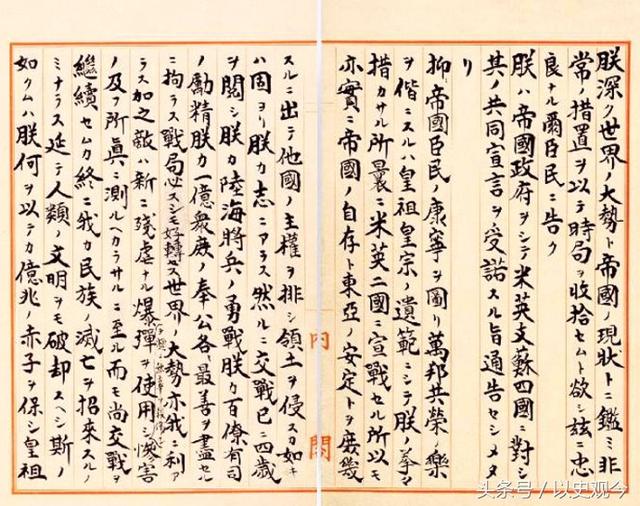 朕深ク世界ノ大勢ト帝國ノ現狀トニ鑑ミ非
常ノ措置ヲ以テ時局ヲ收拾セムト欲シ茲ニ忠
良ナル爾臣民ニ告ク
朕ハ帝國政府ヲシテ米英支蘇四國ニ對シ
其ノ共同宣言ヲ受諾スル旨通告セシメタ
リ
抑〻帝國臣民ノ康寧ヲ圖リ萬邦共榮ノ樂
ヲ偕ニスルハ皇祖皇宗ノ遺範ニシテ朕ノ拳々
措カサル所曩ニ米英二國ニ宣戰セル所以モ
亦實ニ帝國ノ自存ト東亞ノ安定トヲ庶幾
内閣
スルニ出テ他國ノ主權ヲ排シ領土ヲ侵スカ如キ
ハ固ヨリ朕カ志ニアラス然ルニ交戰已ニ四歳
ヲ閲シ朕カ陸海將兵ノ勇戰朕カ百僚有司
ノ勵精朕カ一億衆庶ノ奉公各〻最善ヲ盡セル
ニ拘ラス戰局必スシモ好轉セス世界ノ大勢亦我ニ利ア
ラス加之敵ハ新ニ殘虐ナル爆彈ヲ使用シ慘害
ノ及フ所眞ニ測ルヘカラサルニ至ル而モ尚交戰ヲ
繼續セムカ終ニ我カ民族ノ滅亡ヲ招來スルノ
ミナラス延テ人類ノ文明ヲモ破却スヘシ斯ノ
如クムハ朕何ヲ以テカ億兆ノ赤子ヲ保シ皇祖
头条号／以史观今